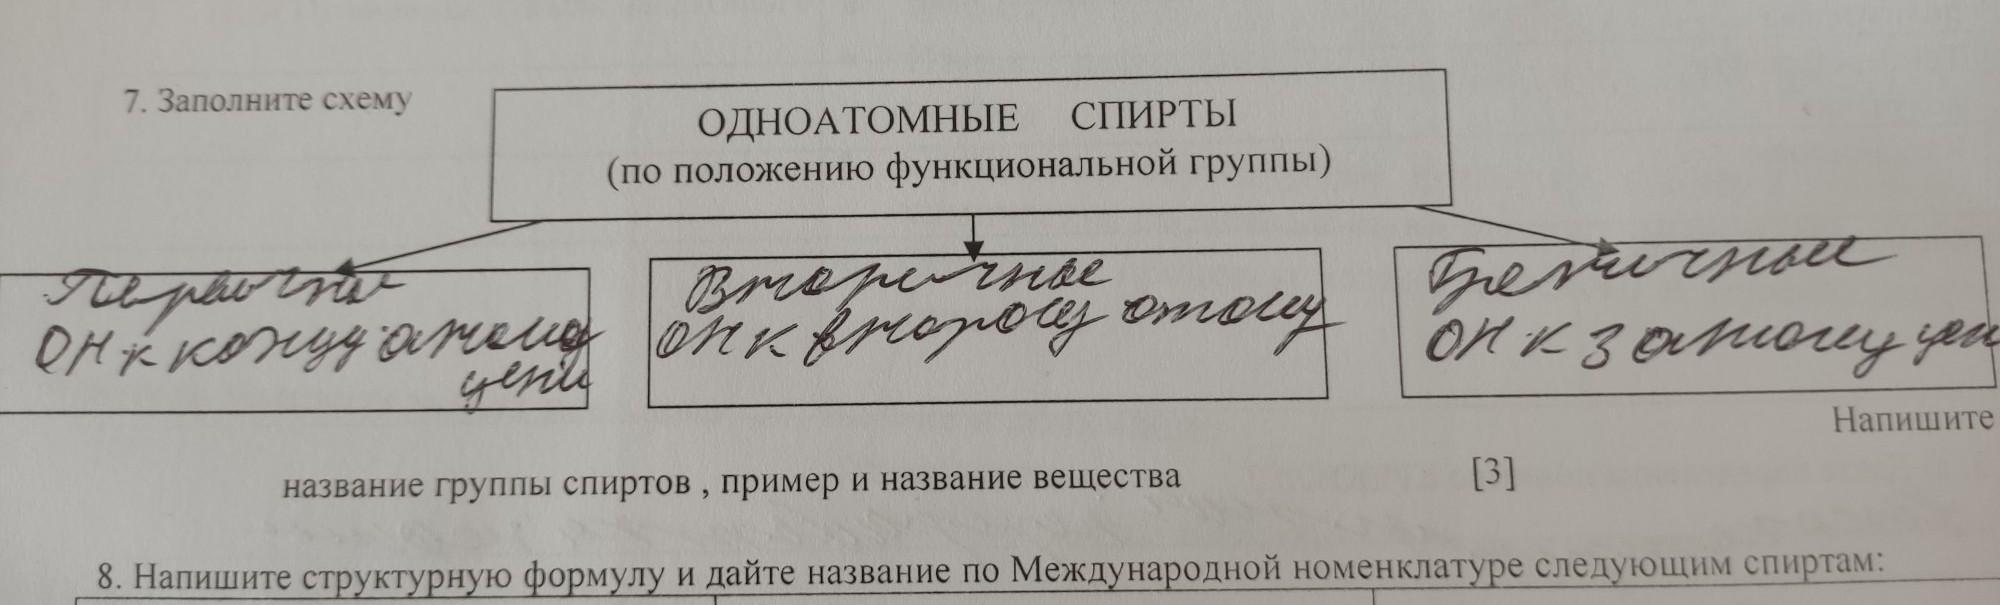 7. Заполните схему
ОДНОАТОМНЫЕ СПИРТЫ
(по положению функциональной группы)
Первичные
ОН к концу атому
цепи
Вторичные
ОН к второму атому
Третичные
ОН к 3 атому цеп
Напишите
название группы спиртов , пример и название вещества [3]
8. Напишите структурную формулу и дайте название по Международной номенклатуре следующим спиртам: